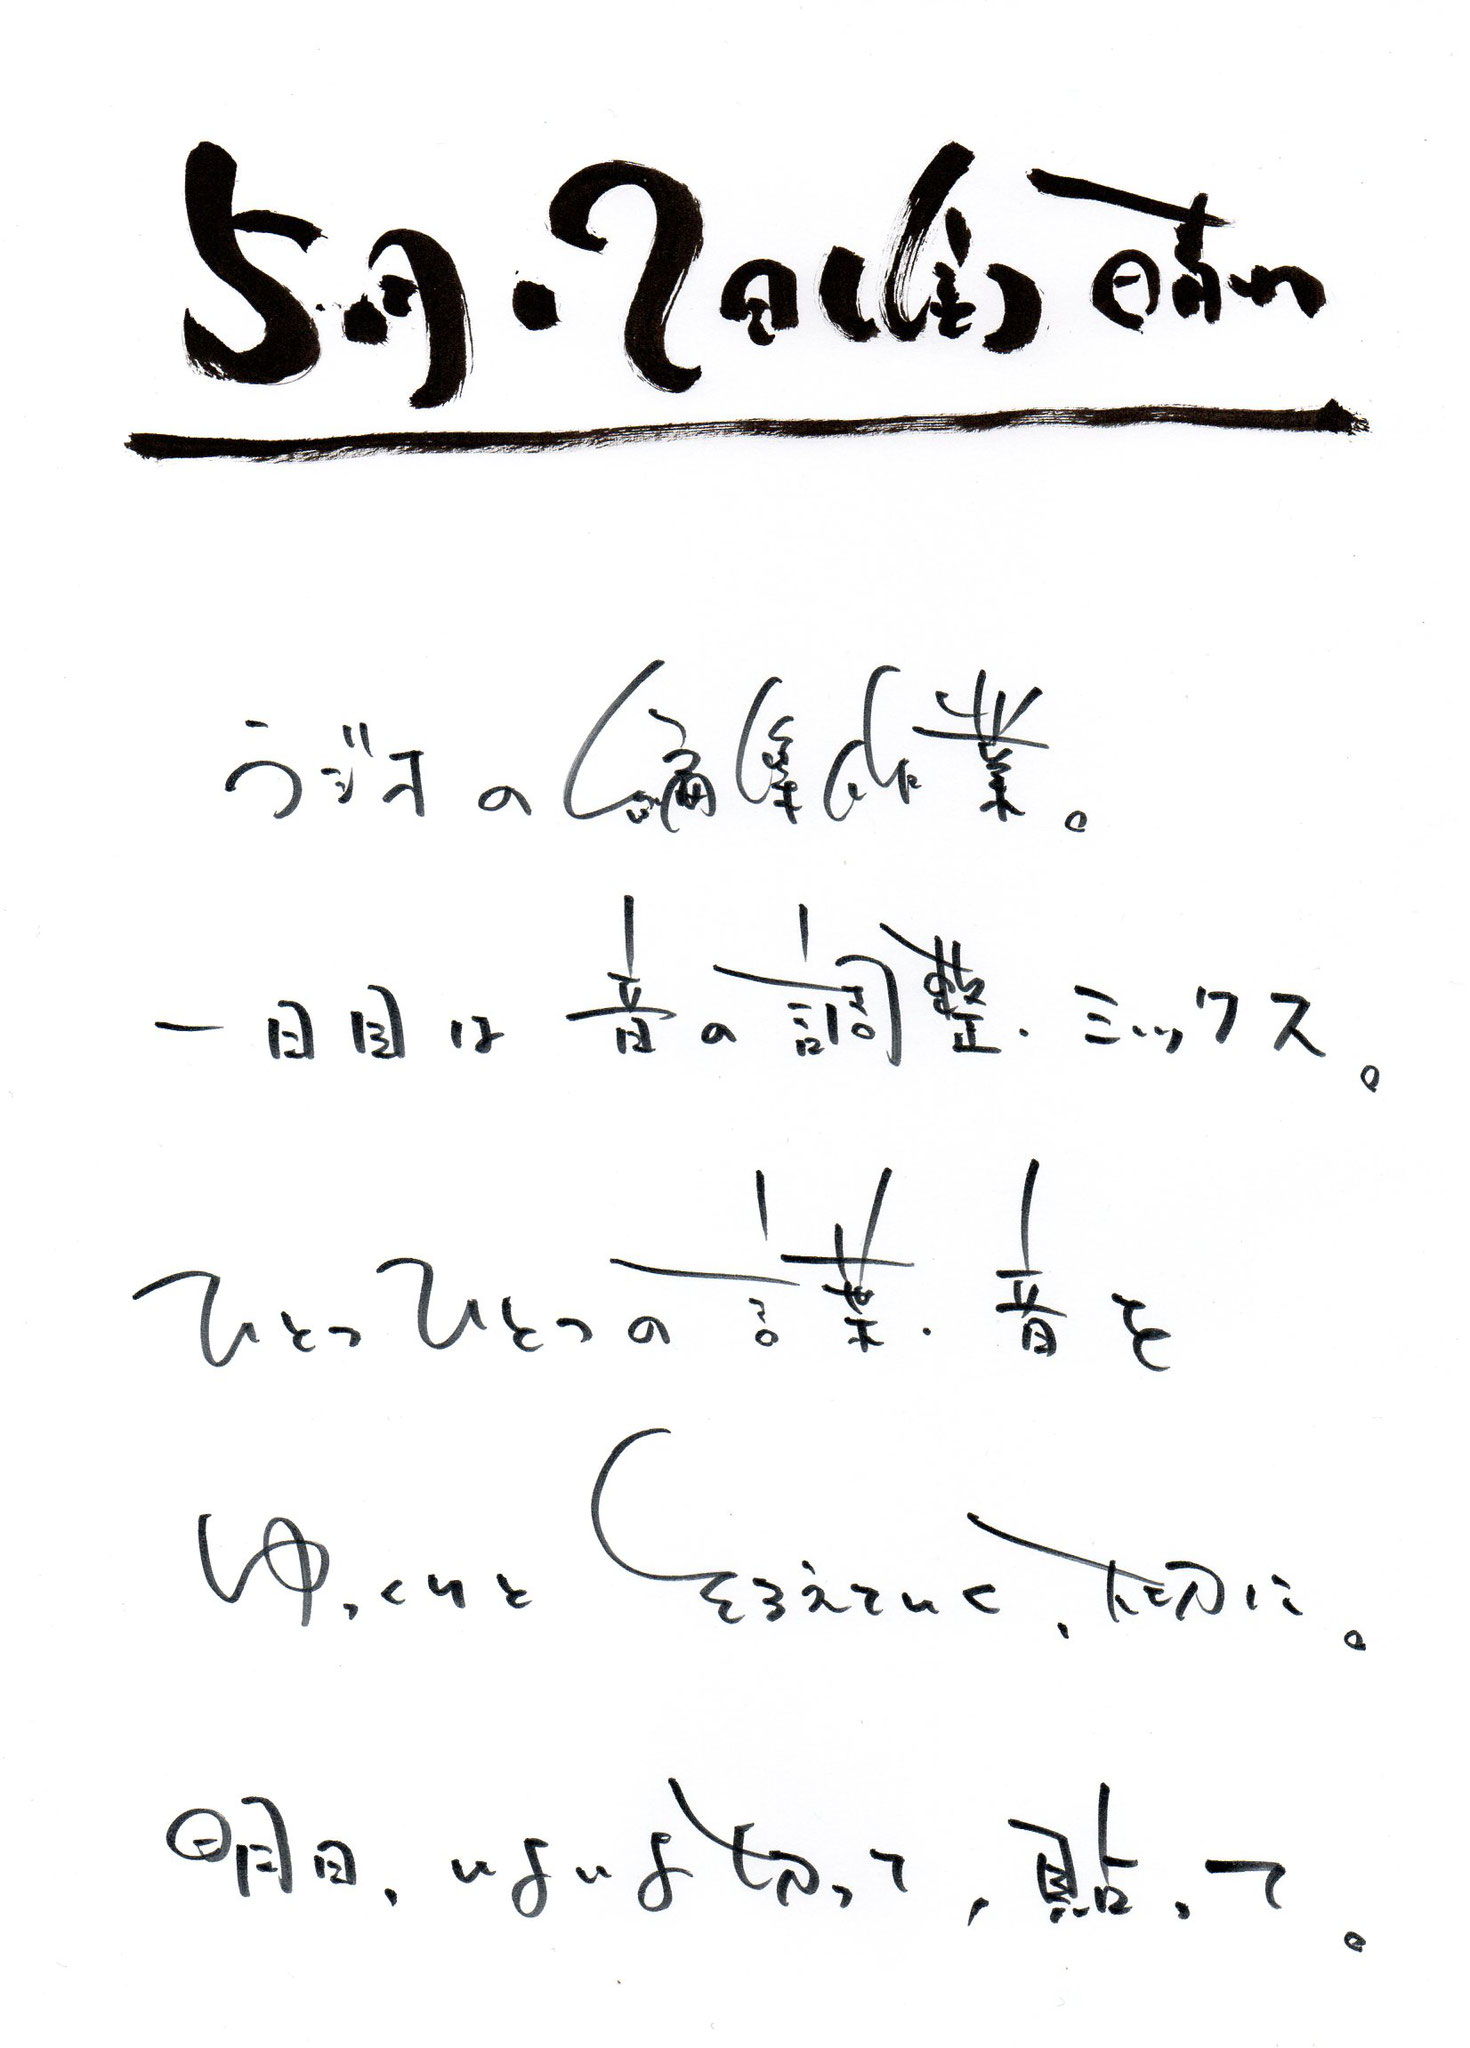 5月・日(金) 晴れ
ラジオの編集作業。
一日目は音の調整・ミックス。
ひとつひとつの言葉・音を
ゆっくりとそろえていく、大切に。
明日、いよいよ切って、貼って。